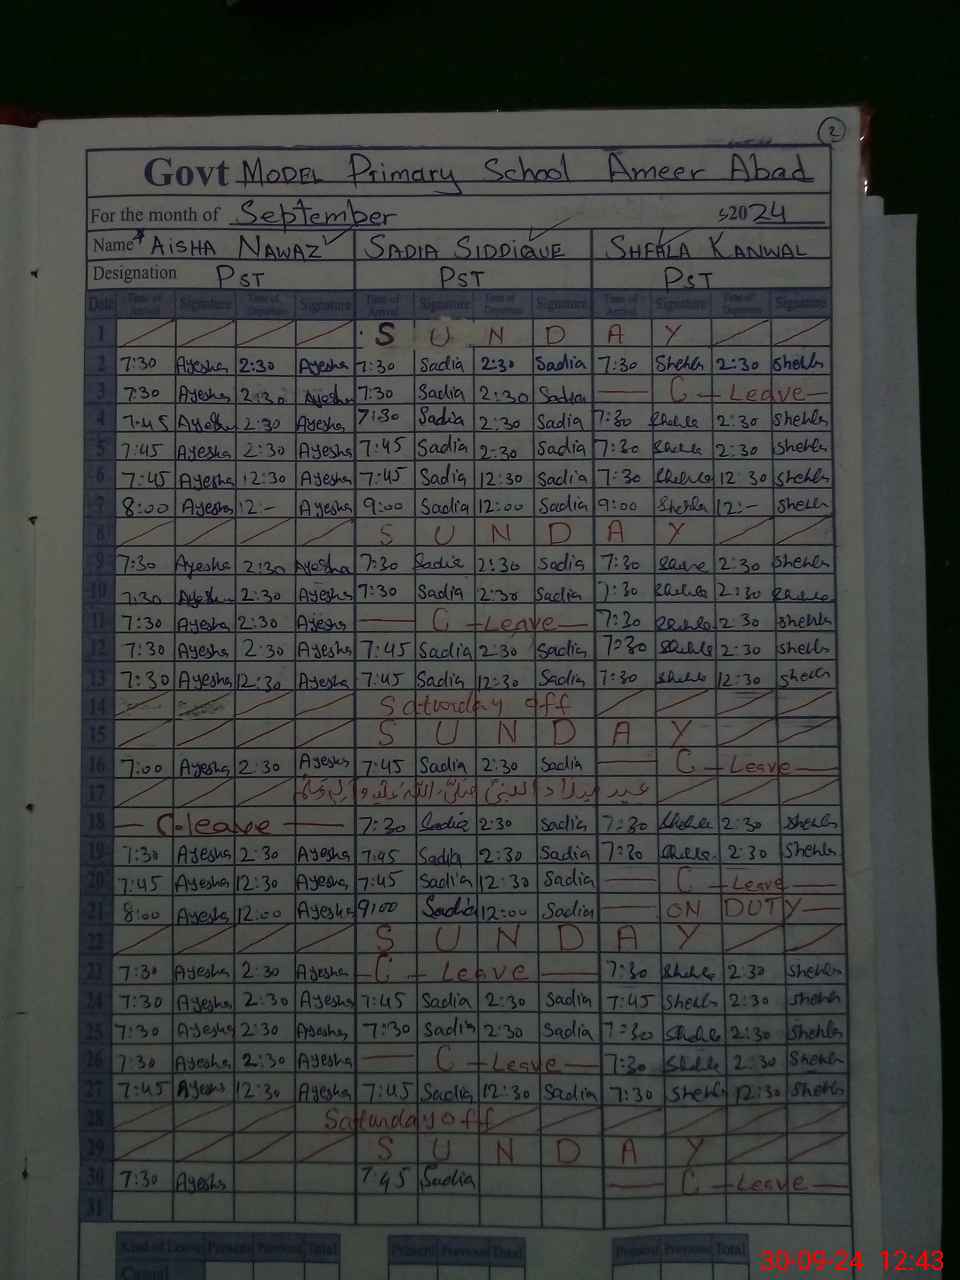 2
Govt MODEL Primary School Ameer Abad
For the month of September 2024
Name AiSHA NAWAZ SADIA SIDDIQUE SHEHLA KANWAL
Designation PST PST PST
Date Time of Arrival Signature Time of Departure Signature Time of Arrival Signature Time of Departure Signature Time of Arrival Signature Time of Departure Signature
1 S U N D A Y
2 7:30 Ayesha 2:30 Ayesha 7:30 Sadia 2:30 Sadia 7:30 Shehla 2:30 Shehla
3 7:30 Ayesha 2:30 Ayesha 7:30 Sadia 2:30 Sadia C - Leave
4 7:45 Ayesha 2:30 Ayesha 7:30 Sadia 2:30 Sadia 7:30 Shehla 2:30 Shehla
5 7:45 Ayesha 2:30 Ayesha 7:45 Sadia 2:30 Sadia 7:30 Shehla 2:30 Shehla
6 7:45 Ayesha 12:30 Ayesha 7:45 Sadia 12:30 Sadia 7:30 Shehla 12:30 Shehla
7 8:00 Ayesha 12:- Ayesha 9:00 Sadia 12:00 Sadia 9:00 Shehla 12:- Shehla
8 S U N D A Y
9 7:30 Ayesha 2:30 Ayesha 7:30 Sadia 2:30 Sadia 7:30 Shehla 2:30 Shehla
10 7:30 Ayesha 2:30 Ayesha 7:30 Sadia 2:30 Sadia 7:30 Shehla 2:30 Shehla
11 7:30 Ayesha 2:30 Ayesha C - Leave 7:30 Shehla 2:30 Shehla
12 7:30 Ayesha 2:30 Ayesha 7:45 Sadia 2:30 Sadia 7:30 Shehla 2:30 Shehla
13 7:30 Ayesha 12:30 Ayesha 7:45 Sadia 12:30 Sadia 7:30 Shehla 12:30 Shehla
14 Saturday off
15 S U N D A Y
16 7:00 Ayesha 2:30 Ayesha 7:45 Sadia 2:30 Sadia C - Leave
17 عید میلاد النبی
18 C-leave 7:30 Sadia 2:30 Sadia 7:30 Shehla 2:30 Shehla
19 7:30 Ayesha 2:30 Ayesha 7:45 Sadia 2:30 Sadia 7:30 Shehla 2:30 Shehla
20 7:45 Ayesha 12:30 Ayesha 7:45 Sadia 12:30 Sadia C - Leave
21 8:00 Ayesha 12:00 Ayesha 9:00 Sadia 12:00 Sadia ON DUTY
22 S U N D A Y
23 7:30 Ayesha 2:30 Ayesha C - Leave 7:30 Shehla 2:30 Shehla
24 7:30 Ayesha 2:30 Ayesha 7:45 Sadia 2:30 Sadia 7:45 Shehla 2:30 Shehla
25 7:30 Ayesha 2:30 Ayesha 7:30 Sadia 2:30 Sadia 7:30 Shehla 2:30 Shehla
26 7:30 Ayesha 2:30 Ayesha C - Leave 7:30 Shehla 2:30 Shehla
27 7:45 Ayesha 12:30 Ayesha 7:45 Sadia 12:30 Sadia 7:30 Shehla 12:30 Shehla
28 Saturday off
29 S U N D A Y
30 7:30 Ayesha 7:45 Sadia C - Leave
31
Kind of Leave Present Previous Total Present Previous Total Present Previous Total
Casual
30-09-24 12:43